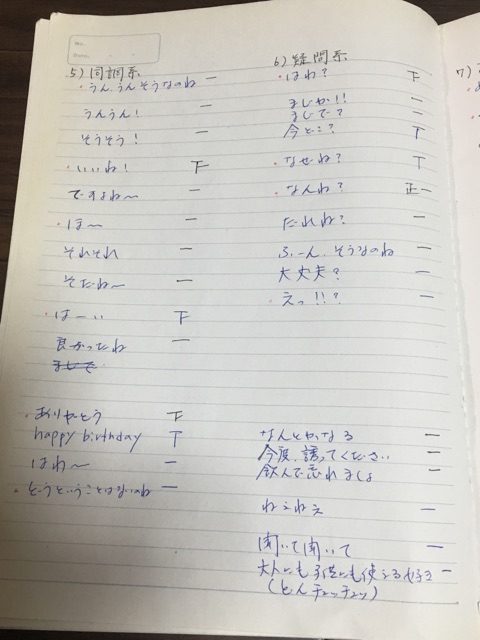 No.
Date
5) 同調系
・うん、うん そうなのね 一
うんうん! 一
そうそう! 一
・いいね! 下
ですよね〜 一
・ほ〜 一
それそれ 一
そだね〜 一
・はーい 下
良かったね 一
・ありがとう 下
happy birthday T
はわ〜 一
・どうということはないのね 一
6) 疑問系
・はわ? 下
まじか!! 一
まじで? 一
今どこ? T
・なぜね? T
・なんね? 正一
だれね? 一
ふーん、そうなのね 一
大丈夫? 一
・えっ!!? 一
なんとかなる 一
今度、誘ってください 一
飲んで忘れましょ 一
ねぇねぇ 一
聞いて聞いて 一
大人にも子供にも使える 一
7)